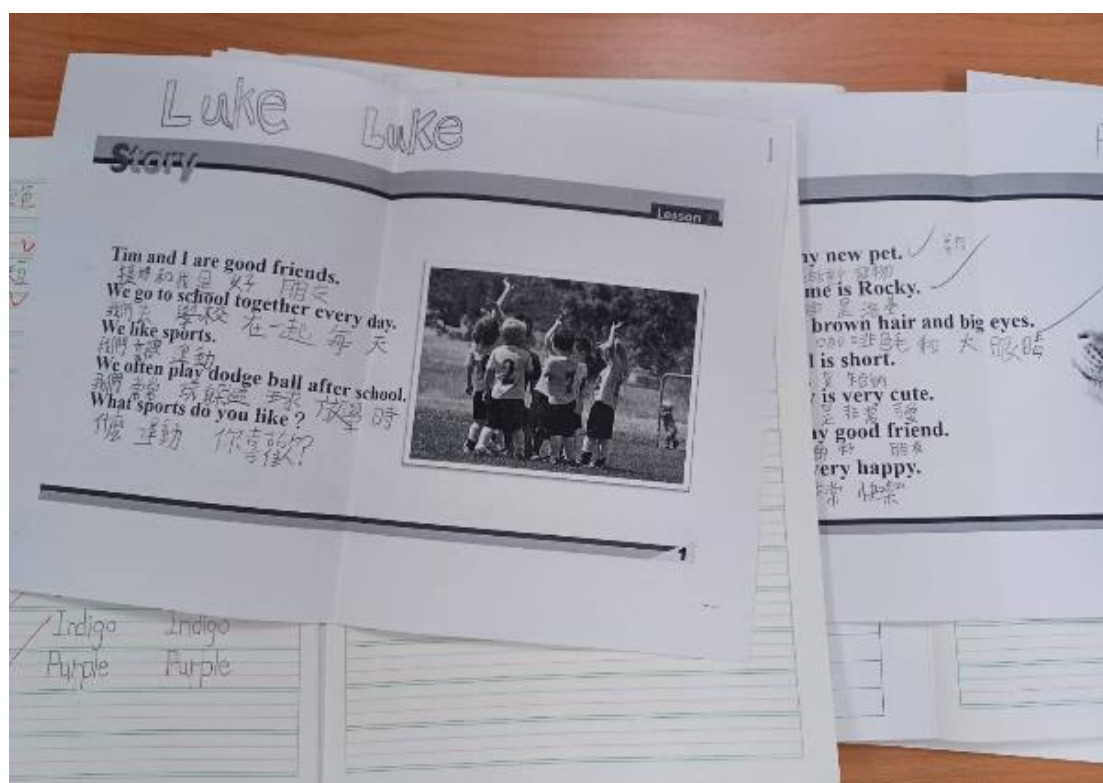 Luke Luke
Story
Lesson
Tim and I are good friends.
和我是 好 朋友
We go to school together every day.
我們去 學校 在一起 每 天
We like sports.
我們 喜歡 運動
We often play dodge ball after school.
我們 常常 球 放學 時
What sports do you like ?
運動 你喜歡?
1
y new pet.
寵物
me is Rocky.
是 洛基
brown hair and big eyes.
咖啡 毛 和 大 眼睛
l is short.
is very cute.
是 非常
y good friend.
朋友
ery happy.
常 快樂
Indigo Indigo
Purple Purple